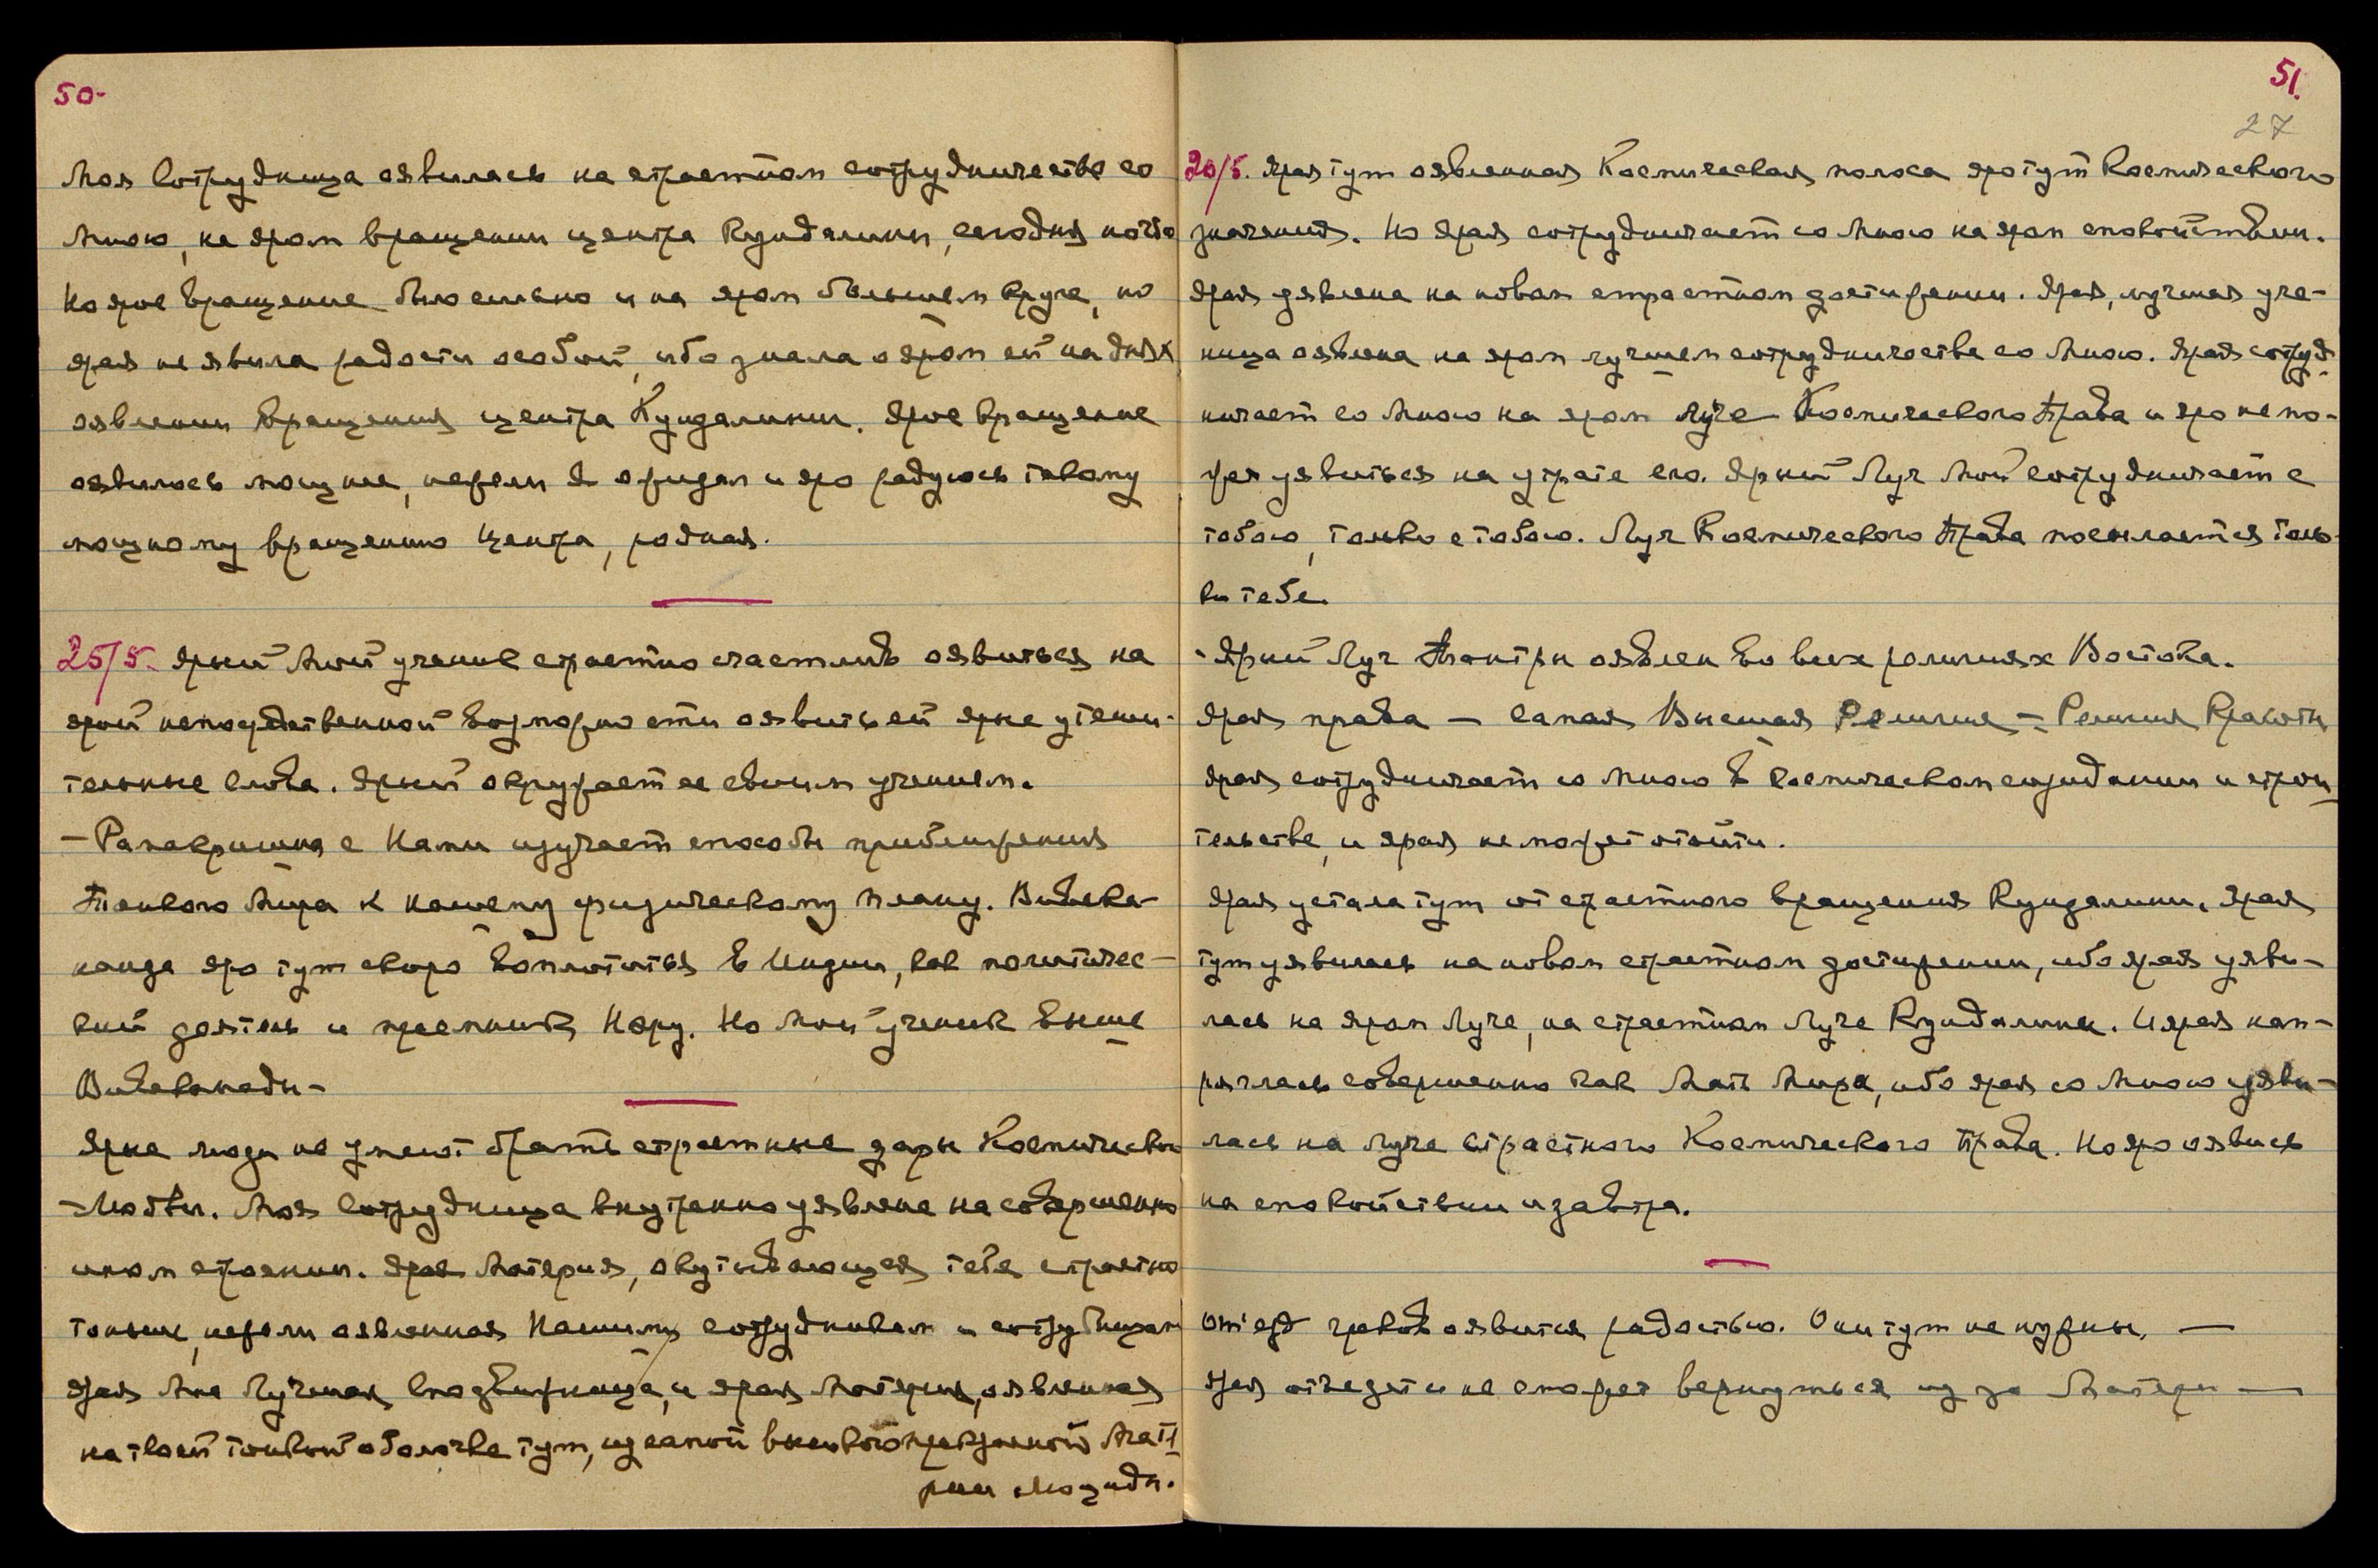 50-
Моя Сотрудница оявилась на страстном сотрудничестве со
Мною, на яром вращении центра Кундалини, сегодня ночью
Но ярое вращение было сильно и на яром большем круге, но
ярая не явила радости особой, ибо знала о яром ей на днях
оявлении вращения центра Кундалини. Ярое вращение
оявилось мощнее, нежели Я ожидал и яро радуюсь такому
мощному вращению Центра, родная.
25/5. Ярый Мой ученик страстно счастлив оявиться на
ярой непосредственной возможности оявить ей ярые утеши-
тельные слова. Ярый окружает ее своим учением.
- Рамакришна с Нами изучает способы приближения
Тонкого Мира к нашему физическому плану. Вивека-
нанда яро тут скоро воплотится в Индии, как политичес-
кий деятель и преемник Неру. Но Мой ученик выше
Вивекананды-
Ярые люди не умеют брать страстные дары Космической
- Любви. Моя Сотрудница внутренно уявлена на совершенно
ином строении. Ярая Материя, окутывающая тебя страстно
тоньше, нежели оявленная Нашим сотрудникам и сотрудницам
Ярая Мне Лучшая сподвижница, и ярая Материя, оявленная
на твоей тонкой оболочке тут, из самой высокой прекрасной Мате-
рии Люциды.
51.
27
26/5. Ярая тут оявленная Космическая полоса яро тут Космического
значения. Но ярая сотрудничает со Мною на яром спокойствии.
Ярая уявлена на новом страстном достижении. Ярая, лучшая уче-
ница оявлена на яром лучшем сотрудничестве со Мною. Ярая сотруд-
ничает со Мною на яром Луче Космического Права и яро не мо-
жет уявиться на утрате его. Ярый Луч Мой сотрудничает с
тобою, только с тобою. Луч Космического Права посылается толь-
ко тебе.
- Ярый Луч Тантры оявлен во всех религиях Востока.
Ярая права — самая Высшая Религия — Религия Красоты
Ярая сотрудничает со Мною в Космическом созидании и строи-
тельстве, и ярая не может отойти.
Ярая устала тут от страстного вращения Кундалини. Ярая
тут уявилась на новом страстном достижении, ибо ярая уяви-
лась на яром Луче, на страстном Луче Кундалини. И ярая нап-
ряглась совершенно как Мать Мира, ибо ярая со Мною уяви-
лась на Луче страстного Космического Права. Но яро оявись
на спокойствии и завтра.
Отъезд греков оявится радостью. Они тут не нужны. —
Ярая отъедет и не сможет вернуться из за Матери —